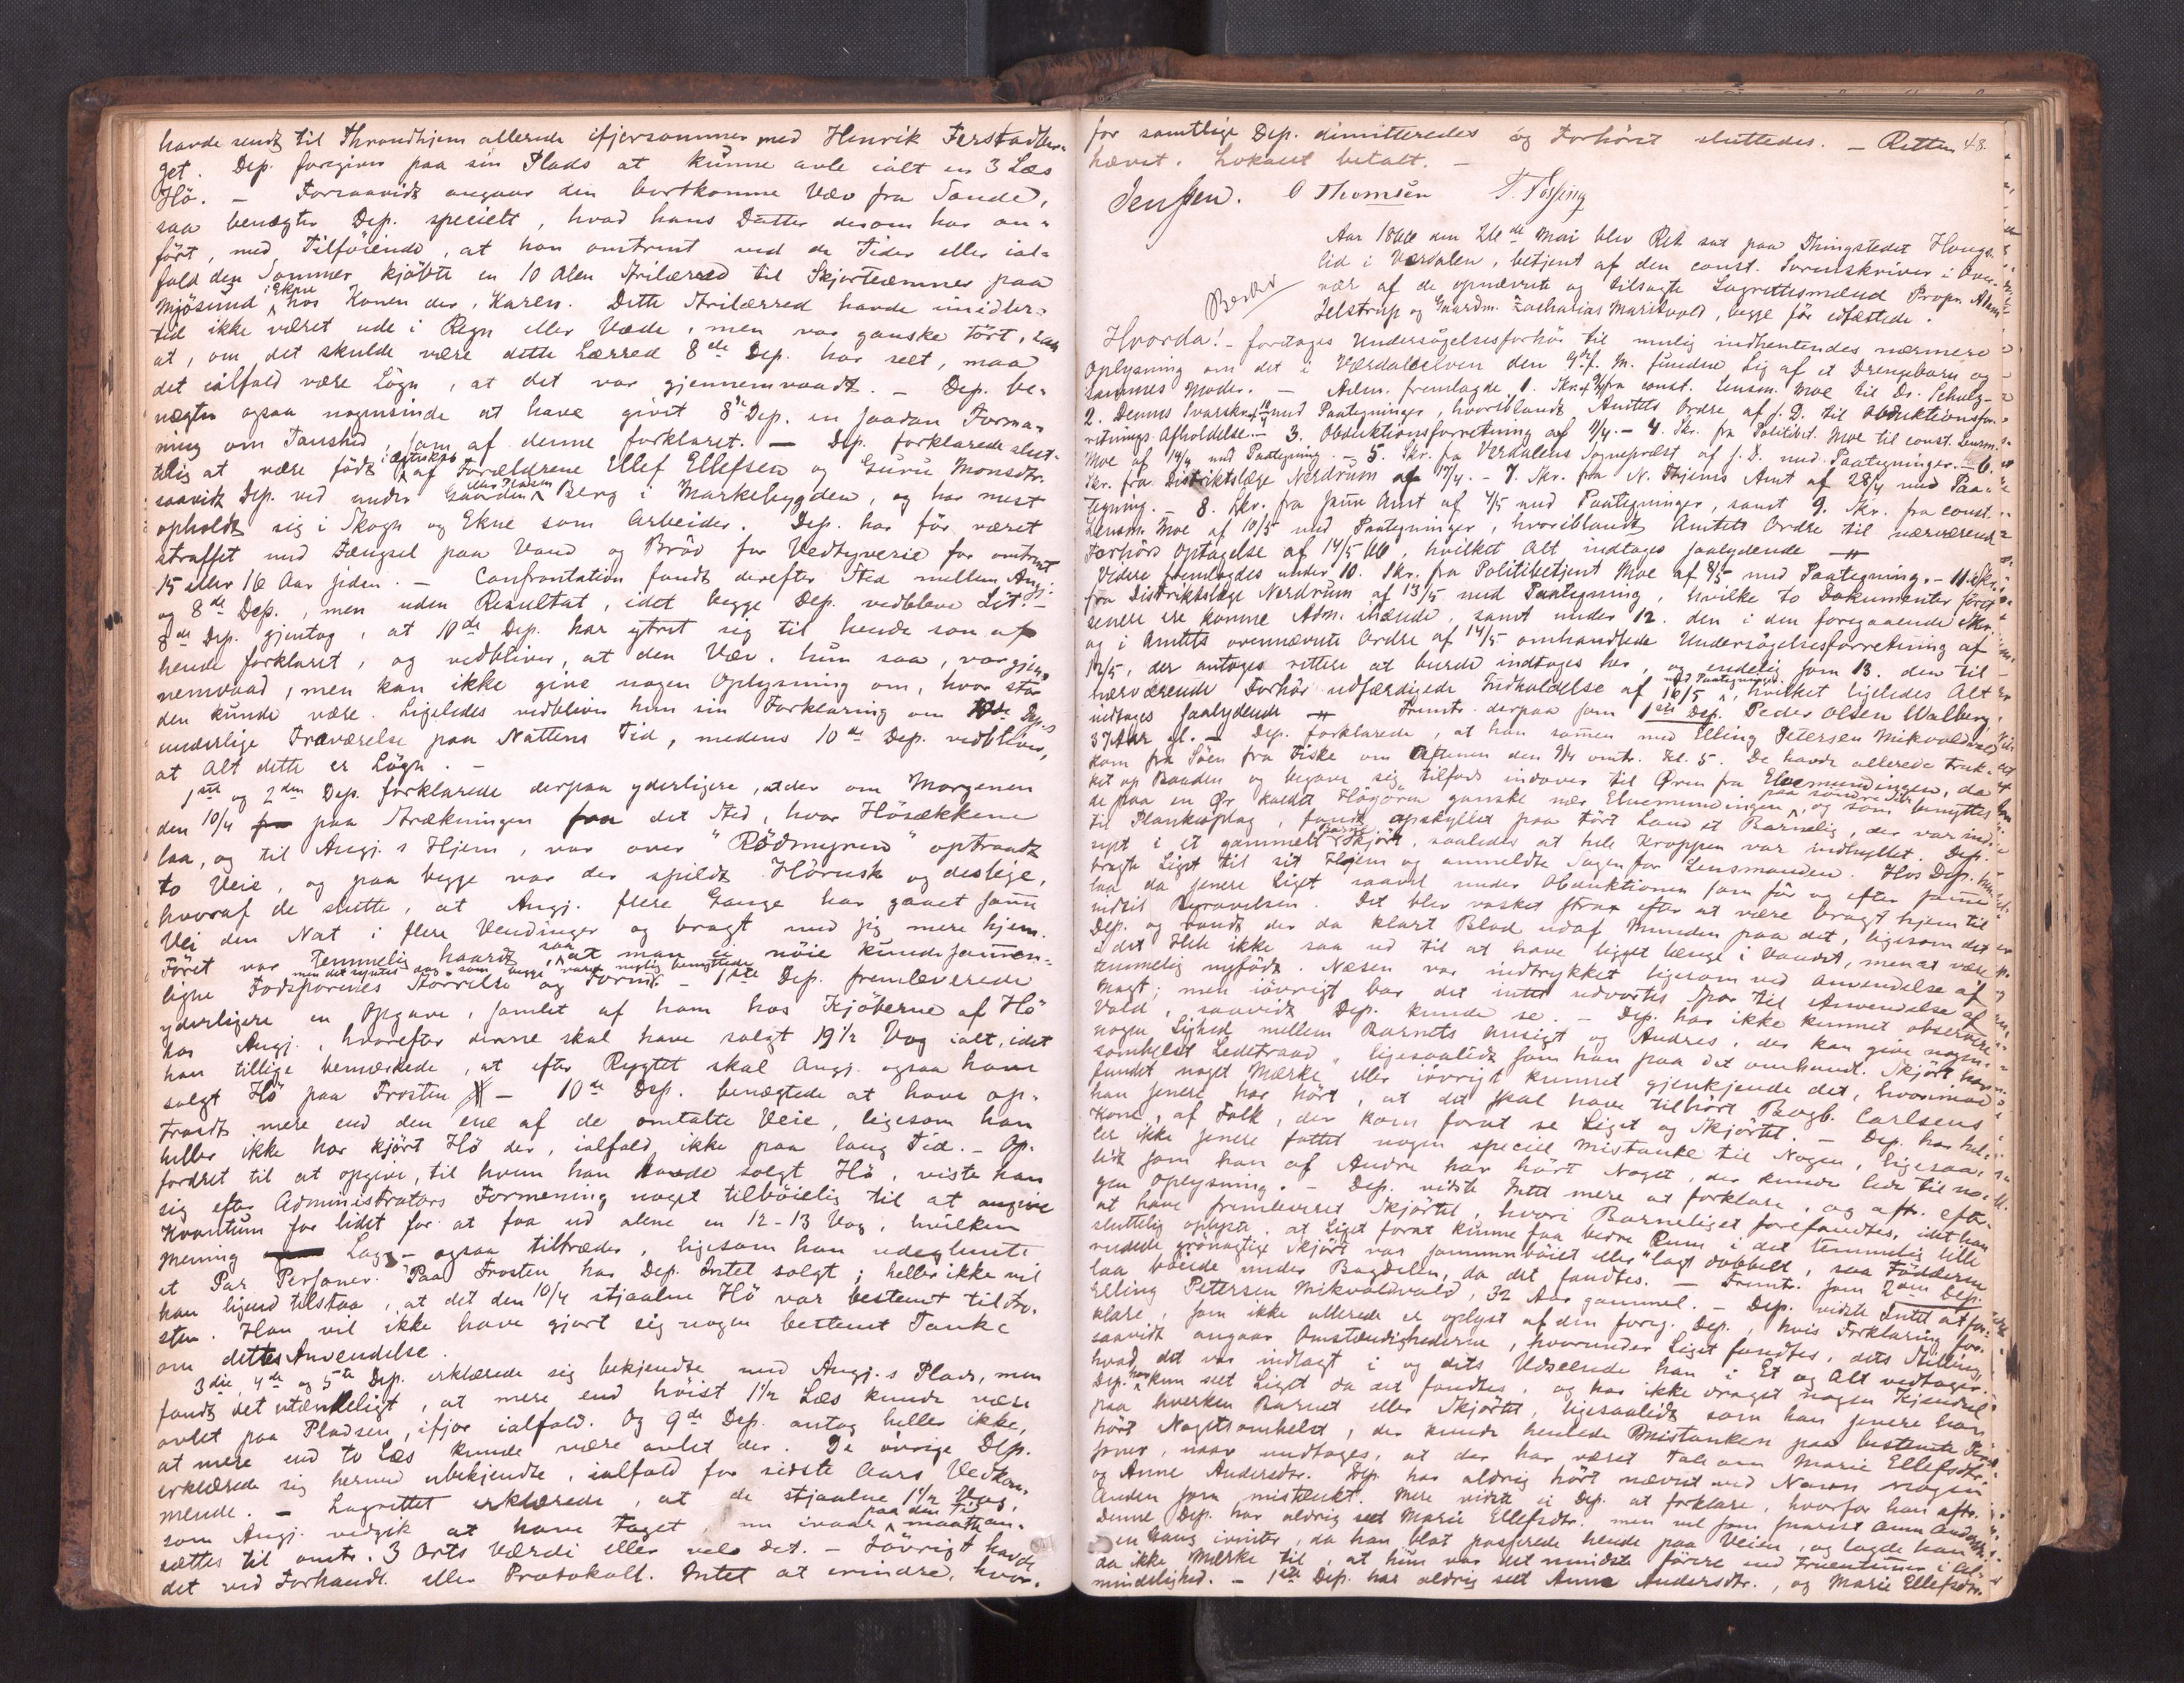 havde sendt til Throndhjem allerede ifjersommer med Henrik Ferstadber-
get. Dep. foregiver paa sin Plads at kunne avle ialt en 3 Læs
Hö. – Forsaavidt angaar den bortkomne Væv fra Sande,
saa benægter Dep. specielt, hvad hans Datter desom har an-
ført, med Tilföiende, at han omtrent ved de Tider eller ial-
fald den Sommer kjöbte en 10 Alen Strilærred til Skjorteemner paa
Mjösund i Ekne hos Konen der, Karen. Dette Strilærred havde imidler-
tid ikke været ude i Regn eller Væde, men var ganske tört, saa
at, om det skulde være dette Lærred 8de Dep. har seet, maa
det ialfald være Lögn, at det var gjennemvaadt. – Dep. be-
nægter ogsaa nogensinde at have givet 8de Dep. en saadan Forma-
ning om Taushed, som af denne forklaret. – Dep. forklarede slut-
telig at være födt i Ægteskab af Forældrene Ellef Ellefsen og Guru Monsdtr.
saavidt Dep. ved under Gaarden Berg i Markebygden, og har mest
opholdt sig i Skogn og Ekne som Arbeider. Dep. har för været
straffet med Fængsel paa Vand og Bröd for Vedtyverie for omtrent
15 eller 16 Aar siden. – Confrontation fandt derefter Sted mellem Angj.
og 8de Dep., men uden Resultat, idet begge Dep. vedbleve Sit. –
8de Dep. gjentog, at 10de Dep. har ytret sig til hende som af
hende forklaret, og vedbliver, at den Væv, hun saa, var gjen-
nemvaad, men kan ikke give nogen Oplysning om, hvor stor
den kunde være. Ligeledes vedbliver hun sin Forklaring om 10de Dep.s
underlige Fraværelse paa Nattens Tid, medens 10de Dep. vedbliver,
at Alt dette er Lögn. –
1ste og 2den Dep. forklarede derpaa yderligere, at der om Morgenen
den 10/4 paa Strækningen fra det Sted, hvor Hösækkene
laa, og til Angj.s Hjem, var over "Rödmyren" optraadt
to Veie, og paa begge var der spildt Hörusk og deslige,
hvoraf de slutte, at Angj. flere Gange har gaaet samme
Vei den Nat i flere Vendinger og bragt med sig mere hjem.
Föret var temmelig haardt, saa at man ei nöie kunde sammen-
ligne Fodsporenes Störrelse og Form, men det syntes dog, som begge vare nylig benyttede. – 1ste Dep. fremleverede
yderligere en Opgave, samlet af ham hos Kjöberne af Hö
hos Angj., hvorefter denne skal have solgt 19 1/2 Vog ialt, idet
han tillige bemærkede, at efter Rygtet skal Angj. ogsaa have
solgt Hö paa Frosten – 10de Dep. benægtede at have op-
traadt mere end den ene af de omtalte Veie, ligesom han
heller ikke har kjört Hö der, ialfald ikke paa lang Tid. – Op-
fordret til at opgive, til hvem han havde solgt Hö, viste han
sig efter Administrators Formening noget tilböielig til at angive
Kvantum for lidet for at faa ud alene en 12-13 Vog, hvilken
Mening Lagr– ogsaa tiltræder, ligesom han udeglemte
et Par Personer. Paa Frosten har Dep. Intet solgt; heller ikke vil
han ligend tilstaa, at det den 10/4 stjaalne Hö var bestemt til Fro-
sten. Han vil ikke have gjort sig nogen bestemt Tanke
om dettes Anvendelse.
3die, 4de og 5te Dep. erklærede sig bekjendte med Angj.s Plads, men
fandt det utænkeligt, at mere end höist 1 1/2 Læs kunde være
avlet paa Pladsen, ifjor ialfald. Og 9de Dep. antog heller ikke,
at mere end to Læs kunde være avlet der. De övrige Dep.
erklærede sig hermed ubekjendte, ialfald for sidste Aars Vedkom-
mende. – Lagrettet erklærede, at de stjaalne 1 1/2 Vog,
som Angj. vedgik at have taget paa den Tid maatte an-
sættes til omtr. 3 Orts Værdi eller vel det. – Iövrigt havde
det ved Forhandl. eller Protokoll. Intet at erindre, hvor-
for samtlige Dep. dimitteredes og Forhöret sluttedes. – Retten 48.
hævet. Lokalet betalt. –
Jenssen. O Thomsen T. Fossing
Aar 1866 den 26de Mai blev Ret sat paa Thingstedet Haugs-
lid i Værdalen, betjent af den const. Sorenskriver i Over-
vær af de opnævnte og tilsagte Lagrettesmænd Propr. Adam
Jelstrup og Gaardm. Zacharias Maritvold, begge för edfæstede.
Hvorda! – foretages Undersögelsesforhör til mulig indhentendes nærmere
Oplysning om det i Værdalselven den 9de f. M. fundne Lig af et Drengebarn og
sammes Moder. – Adm. fremlagde 1. Skr. af 9/4 fra const. Lensm. Moe til Dr. Schulz –
2. Dennes Svarskr. af 10/4 med Paategninger, hvoriblandt Amtets Ordre af s. D. til Obduktionsfor-
retnings Afholdelse. – 3. Obduktionsforretning af 11/4. – 4. Skr. fra Politibet. Moe til const. Lensm.
Moe af 14/4 med Paategning. – 5. Skr. fra Verdalens Sognepræst af s. D. med Paategninger. – 6.
Skr. fra Distriktslæge Nordrum af 17/4. – 7. Skr. fra N. Thjems Amt af 28/4 med Paa-
tegning. – 8. Skr. fra samme Amt af 4/5 med Paategninger, samt 9. Skr. fra const.
Lensm. Moe af 10/5 med Paategninger, hvoriblandt Amtets Ordre til nærværende
Forhörs Optagelse af 14/5 66, hvilket Alt indtages saalydende
Videre fremlagdes under 10. Skr. fra Politibetjent Moe af 8/5 med Paategning. – 11. Skr.
fra Distriktslæge Nordrum af 13/5 med Paategning, hvilke to Dokumenter först
senere ere komne Adm. ihænde, samt under 12. den i den foregaaende Skr.
og i Amtets ovennævnte Ordre af 14/5 omhandlede Undersögelsesforretning af
12/5, der antages rettere at burde indtages her, og endelig som 13. den til
nærværende Forhör udfærdigede Indkaldelse af 16/5 med Paategninger, hvilket ligeledes Alt
indtages saalydende Fremst. derpaa som 1ste Dep. Peder Olsen Walberg,
37 Aar gl. – Dep. forklarede, at han sammen med Elling Petersen Mikvoldvald
kom fra Söen fra Fiske om Aftenen den 9/4 omtr. Kl. 5. De havde allerede truk-
ket op Baaden og begave sig tilfods indover til Øren fra Elvemundingen, da
de paa en Ør kaldet Högören ganske nær Elvemundingen paa söndre Side, og som benyttes
til Plankeoplag, fandt opskyllet paa tört Land et Barnelig, der var ind-
svept i et gammelt Barne-Skjört, saaledes at hele Kroppen var indhyllet. Dep.
bragte Liget til sit Hjem og anmeldte Sagen for Lensmanden. Hos Dep.
laa da senere Liget saavel under Obduktionen som för og efter samme
indtil Begravelsen. Det blev vasket strax efter at være bragt hjem til
Dep. og bandt der da klart Blod udaf Munden paa det, ligesom det
i det Hele ikke saa ud til at have ligget længe i Vandet, men at være
temmelig nyfödt. Næsen var indtrykket ligesom ved Anvendelse af
Magt; men iövrigt bar det intet udvortes Spor til Anvendelse af
Vold, saavidt Dep. kunde se. – Dep. har ikke kunnet observere
nogen Lighed mellem Barnets Ansigt og Andres, der kan give nogen-
somhelst Ledetraad, ligesaalidt som han paa det omhandl. Skjört har
fundet noget Mærke eller iövrigt kunnet gjenkjende det, hvorimod
han senere har hört, at det skal have tilhört Bogb. Carlsens
Kone, af Folk, der kom forat se Liget og Skjörtet. – Dep. har hel-
ler ikke senere fattet nogen speciel Mistanke til Nogen, ligesaa-
lidt som han af Andre har hört Noget, der kunde lede til no-
gen Oplysning. – Dep. vidste Intet mere at forklare, og aftr. efter
at have fremleveret Skjörtet, hvori Barneliget forefandtes, idet han
sluttelig oplyste, at Liget forat kunne faa bedre Rum i det temmelig lille
rudede grönagtige Skjört var sammenböiet eller "lagt dobbelt", saa Födderne
laa böiede under Bagdelen, da det fandtes. – Fremst. som 2den Dep.
Elling Petersen Mikvoldvald, 32 Aar gammel. – Dep. vidste Intet at for-
klare, som ikke allerede er oplyst af den foreg. Dep., hvis Forklaring for-
saavidt angaar Omstændighederne, hvorunder Liget fandtes, dets Stilling,
hvad det var indlagt i og dets Udseende han i Et og Alt vedtager.
Dep. har kun seet Liget da det fandtes, og har ikke draget nogen Kjendsel
paa hverken Barnet eller Skjörtet, ligesaalidt som han senere har
hört Nogetsomhelst, der kunde henlede Mistanken paa bestemte Per-
soner, naar undtages, at der har været Tale om Marie Ellefsdtr.
og Anne Andersdtr. Dep. har aldrig hört nævnt ved Navn nogen
Anden som mistænkt. Mere vidste ei Dep. at forklare, hvorfor han aftr.
Denne Dep. har aldrig seet Marie Ellefsdtr. men vel som snarest Anne Andersdtr.
en Gang ivinter, da han blot passerede hende paa Veien, og lagde han
da ikke Mærke til, at hun var det mindste förere end Fruentimmer i Al-
mindelighed. – 1ste Dep. har aldrig seet Anne Andersdtr., og Marie Ellefsdtr.